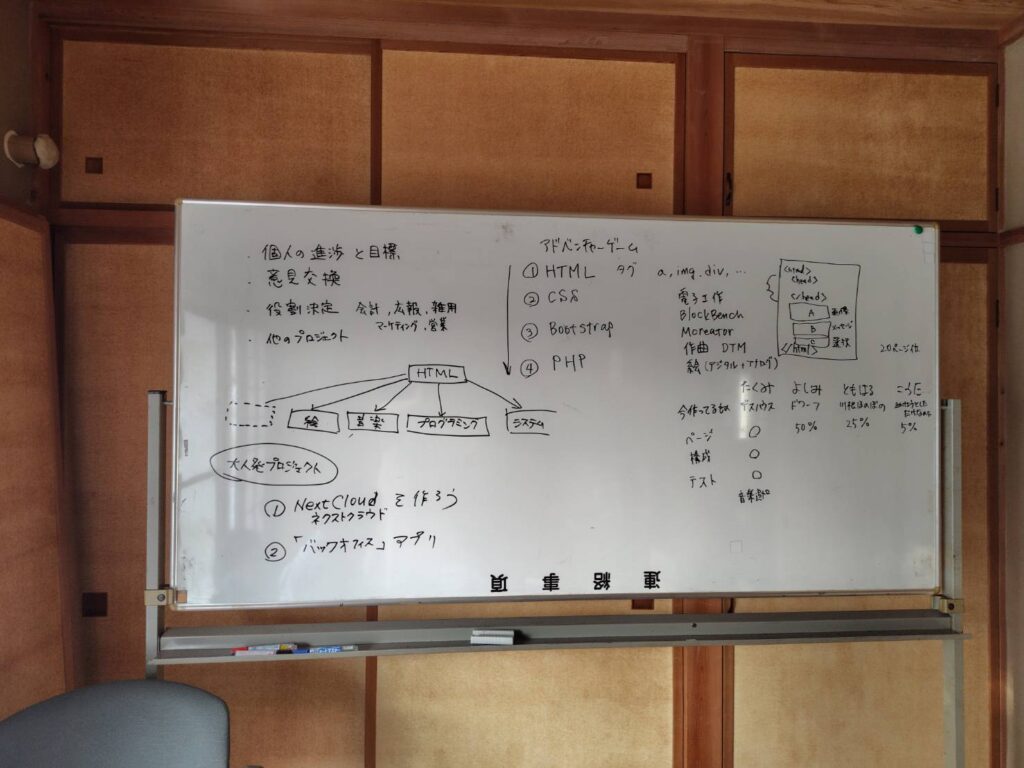 ・個人の進捗と目標
・意見交換
・役割決定 会計,広報,雑用
マーケティング,営業
・他のプロジェクト
HTML
絵
音楽
プログラミング
システム
大人発プロジェクト
① NextCloud を作ろう
ネクストクラウド
② 「バックオフィス」アプリ
アドベンチャーゲーム
① HTML タグ a, img, div, …
② CSS
③ Bootstrap
④ PHP
電子工作
BlockBench
Mcreator
作曲 DTM
絵(デジタル+アナログ)
<html>
<head>
</head>
A 画像
B メッセージ
C 選択
</html>
20ページ位
たくみ よしみ ともはる こうた
今作ってるもの デスハウス ドワーフ
50% 25% 5%
ページ ○
構成 ○
テスト ○
音楽
連絡事項